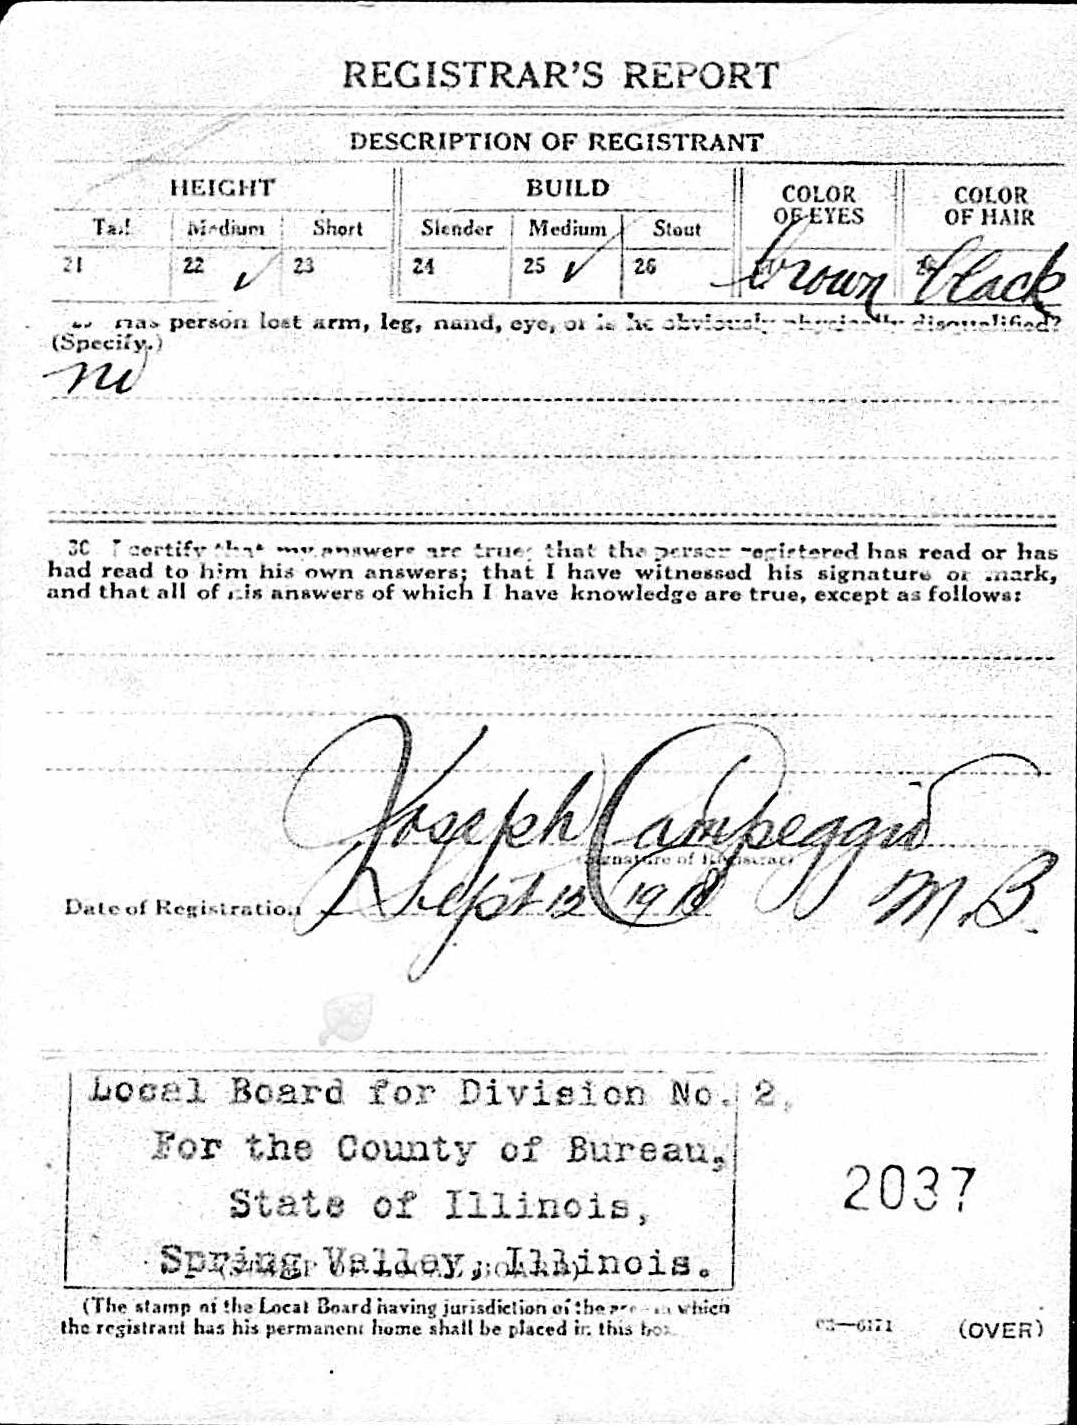 REGISTRAR'S REPORT
DESCRIPTION OF REGISTRANT
HEIGHT BUILD COLOR OF EYES COLOR OF HAIR
Tall Medium Short Slender Medium Stout
21 22 ✓ 23 24 25 ✓ 26 brown black
Has person lost arm, leg, hand, eye, or is he obviously physically disqualified?
(Specify.)
no
30 I certify that my answers are true; that the person registered has read or has
had read to him his own answers; that I have witnessed his signature or mark,
and that all of his answers of which I have knowledge are true, except as follows:
Joseph Campeggio
(Signature of Registrar)
Date of Registration Sept 12 1918 M.B.
Local Board for Division No. 2,
For the County of Bureau,
State of Illinois,
Spring Valley, Illinois.
2037
(The stamp of the Local Board having jurisdiction of the area in which
the registrant has his permanent home shall be placed in this box.
03—6171 (OVER)